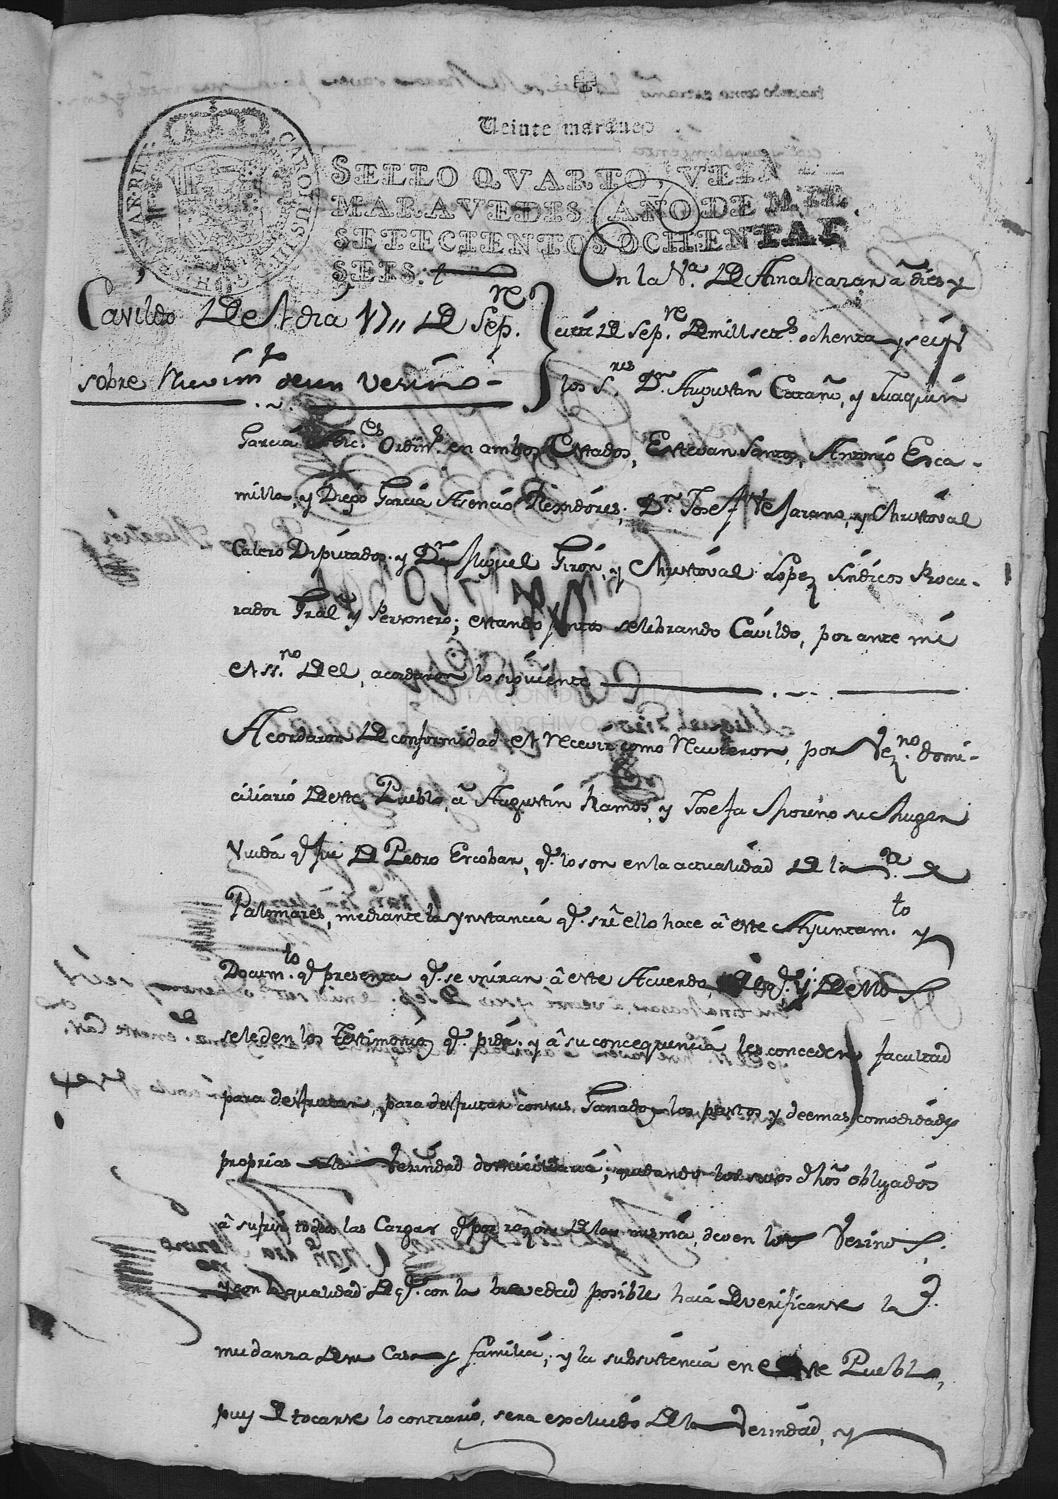 Veinte maraueo
SELLO QVARTO, VEIN
MARAVEDIS, AÑO DE MIL
SETECIENTOS OCHENTAE
SEIS.
Cavildo Del dia 17,, De Sep.re
sobre Recivim.to de un Vecino
En la V.a De Aznalcazar a diez y
siete De Sep.re De mill sett.s ochenta y seis
los S.res D.n Augustin Cataño, y Juaquin
Garcia Alc.es Ordin.s en ambos Estados, Estevan Santos, Antonio Esca-
milla, y Diego Garcia Asencio Rexidores; D.n Josef Vejarano, y Christoval
Calero Diputados; y D.n Miguel Giron, y Christoval Lopez Sindicos Procu-
rador Gral y Personero; estando juntos selebrando Cavildo, por ante mi
el ss.no De el, acordaron lo siguiente
Acordaron De conformidad el Recevir como Recivieron, por Vez.no domi-
ciliario De este Pueblo, a Augustin Ramos, y Josefa Moreno su Muger
Viuda q.e fue De Pedro Escobar, q.e lo son en la actualidad De la V.a de
Palomares, mediante la ynstancia q.e sre ello hace a este Ayuntam.to y
Docum.to q.e presenta q.e se uniran a este Acuerdo,
se le den los Testimonios q.e pida; y a su concequencia les conceden facultad
para desfrutar, para desfrutar con sus Ganados los pastos y demas comodidades
proprias De la Vecindad domiciliaria; quedando los suso dhos obligados
a sufrir todas las Cargas q.e por razon De la misma, deven los Vecinos.
y con la qualidad De q.e con la brevedad posible hacia De verificarse la
mudanza De su Casa y familia; y la subsistencia en este Pueblo,
pues De tocarse lo contrario, sera excluido De la Vecindad, y